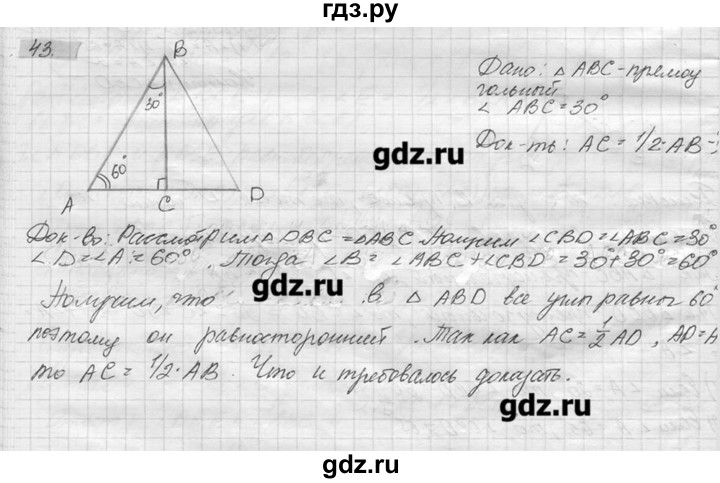 гдз.ру
43.
B
30°
60°
A C D
Дано: △ ABC - прямоу
гольный
∠ ABC = 30°
Док-ть: AC = 1/2·AB
gdz.ru
Док-во: Рассмотрим △ DBC = △ABC Получим ∠CBD = ∠ABC = 30°
∠D = ∠A = 60°. Тогда ∠B = ∠ABC + ∠CBD = 30° + 30° = 60°
gdz.ru
Получим, что в △ ABD все углы равны 60°
поэтому он равносторонний. Так как AC = 1/2 AD, AD = A
то AC = 1/2·AB. Что и требовалось доказать.
gdz.ru
gdz.ru